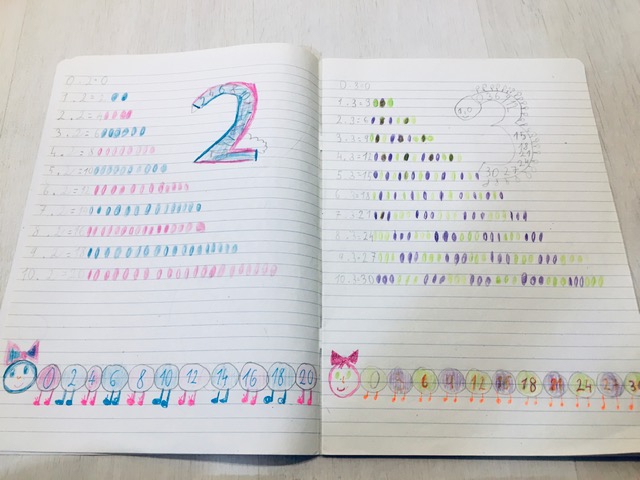 0 . 2 = 0
1 . 2 = 2
2 . 2 = 4
3 . 2 = 6
4 . 2 = 8
5 . 2 = 10
6 . 2 =
7 . 2 =
8 . 2 =
9 . 2 = 18
10 . 2 =
2
0 2 4 6 8 10 12 14 16 18 20
0 . 3 = 0
1 . 3 = 3
2 . 3 = 6
3 . 3 =
4 . 3 = 12
5 . 3 = 15
6 . 3 = 18
7 . 3 = 21
8 . 3 = 24
9 . 3 = 27
10 . 3 = 30
15
18
21
24
27
30
0 6 12 18 24 27